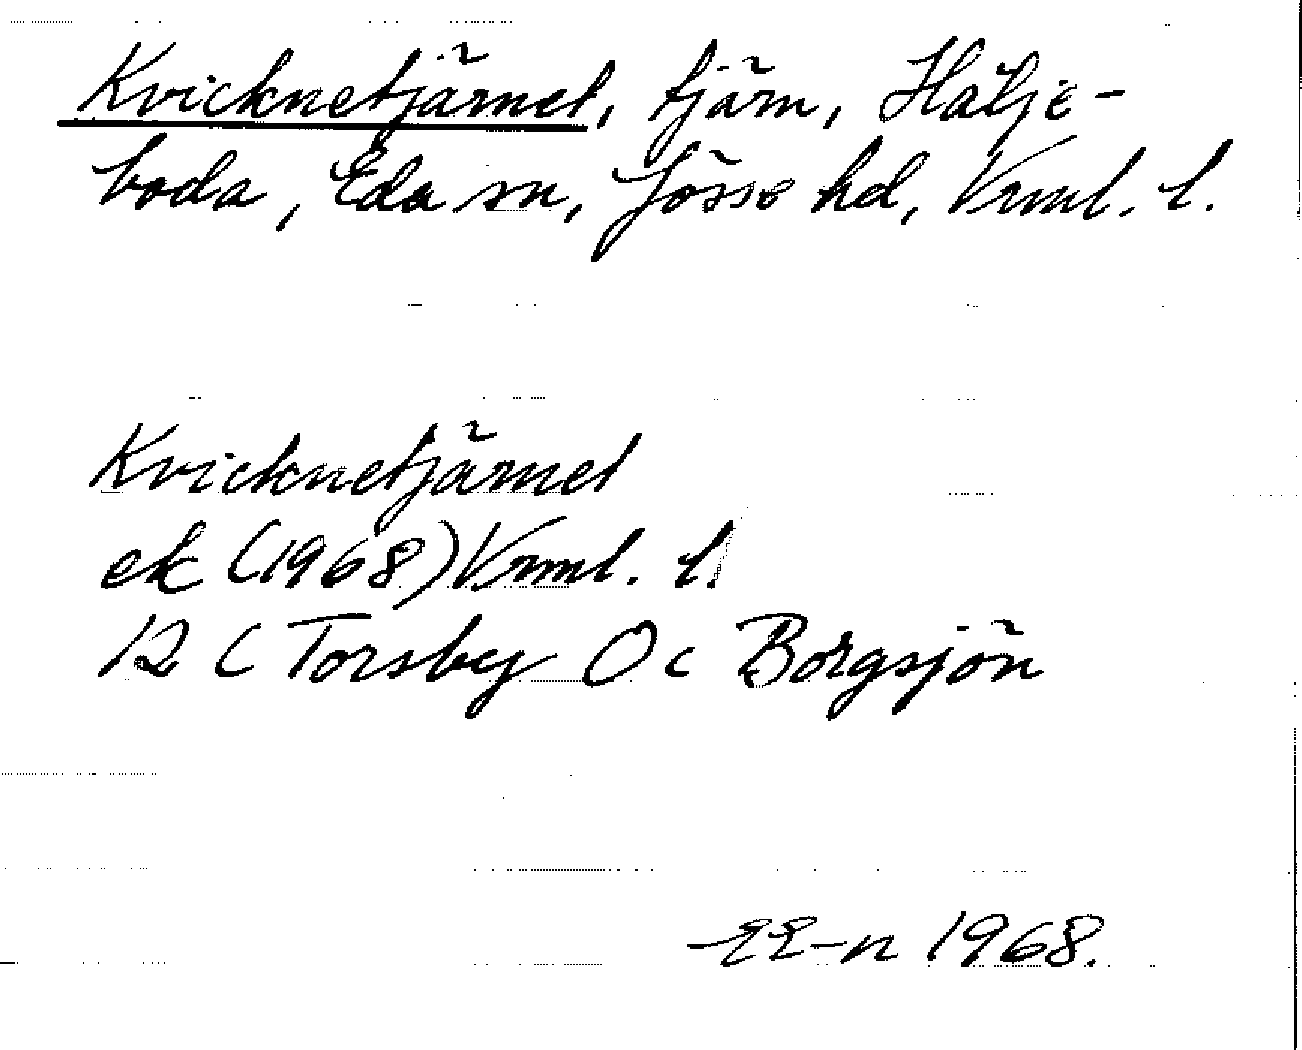 Kvicknetjärnet, tjärn, Hälje-
boda, Eda sn, Jösse hd, Vrml. l.
Kvicknetjärnet
ek (1968) Vrml. l.
12 C Torsby 0c Borgsjön
EE-n 1968.